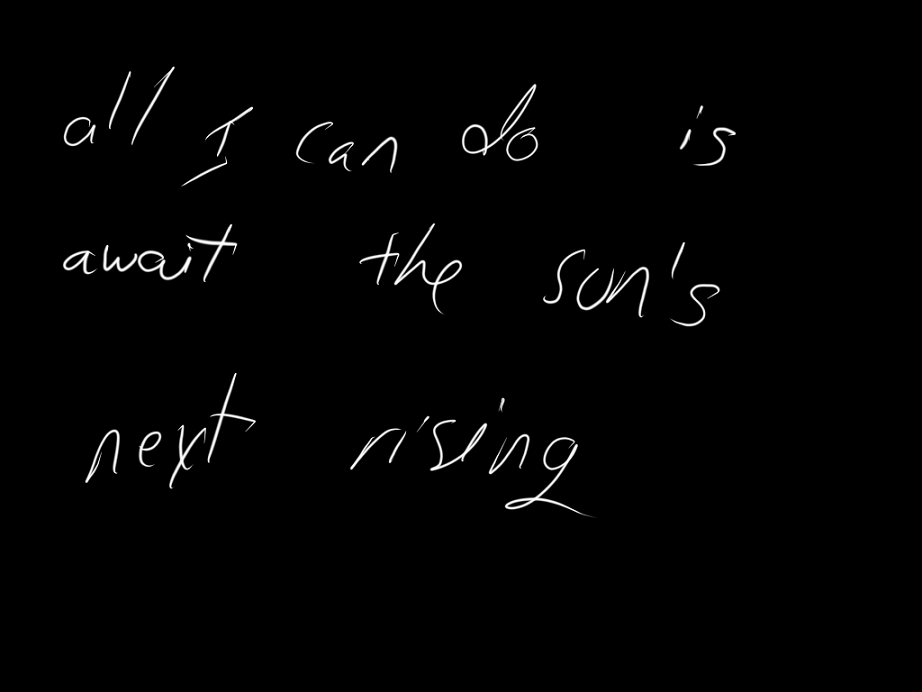 all I can do is
await the sun's
next rising